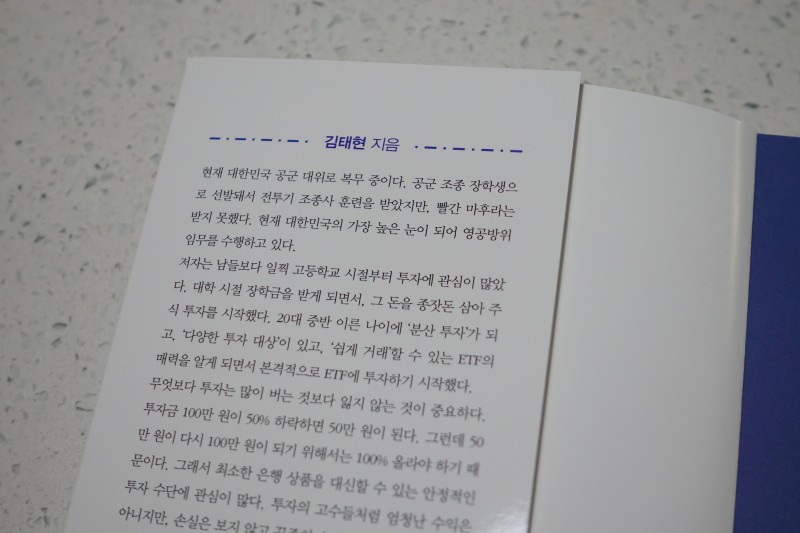 김태현 지음
현재 대한민국 공군 대위로 복무 중이다. 공군 조종 장학생으
로 선발돼서 전투기 조종사 훈련을 받았지만, 빨간 마후라는
받지 못했다. 현재 대한민국의 가장 높은 눈이 되어 영공방위
임무를 수행하고 있다.
저자는 남들보다 일찍 고등학교 시절부터 투자에 관심이 많았
다. 대학 시절 장학금을 받게 되면서, 그 돈을 종잣돈 삼아 주
식 투자를 시작했다. 20대 중반 이른 나이에 ‘분산 투자’가 되
고, ‘다양한 투자 대상’이 있고, ‘쉽게 거래’할 수 있는 ETF의
매력을 알게 되면서 본격적으로 ETF에 투자하기 시작했다.
무엇보다 투자는 많이 버는 것보다 잃지 않는 것이 중요하다.
투자금 100만 원이 50% 하락하면 50만 원이 된다. 그런데 50
만 원이 다시 100만 원이 되기 위해서는 100% 올라야 하기 때
문이다. 그래서 최소한 은행 상품을 대신할 수 있는 안정적인
투자 수단에 관심이 많다. 투자의 고수들처럼 엄청난 수익은
아니지만, 손실은 보지 않고